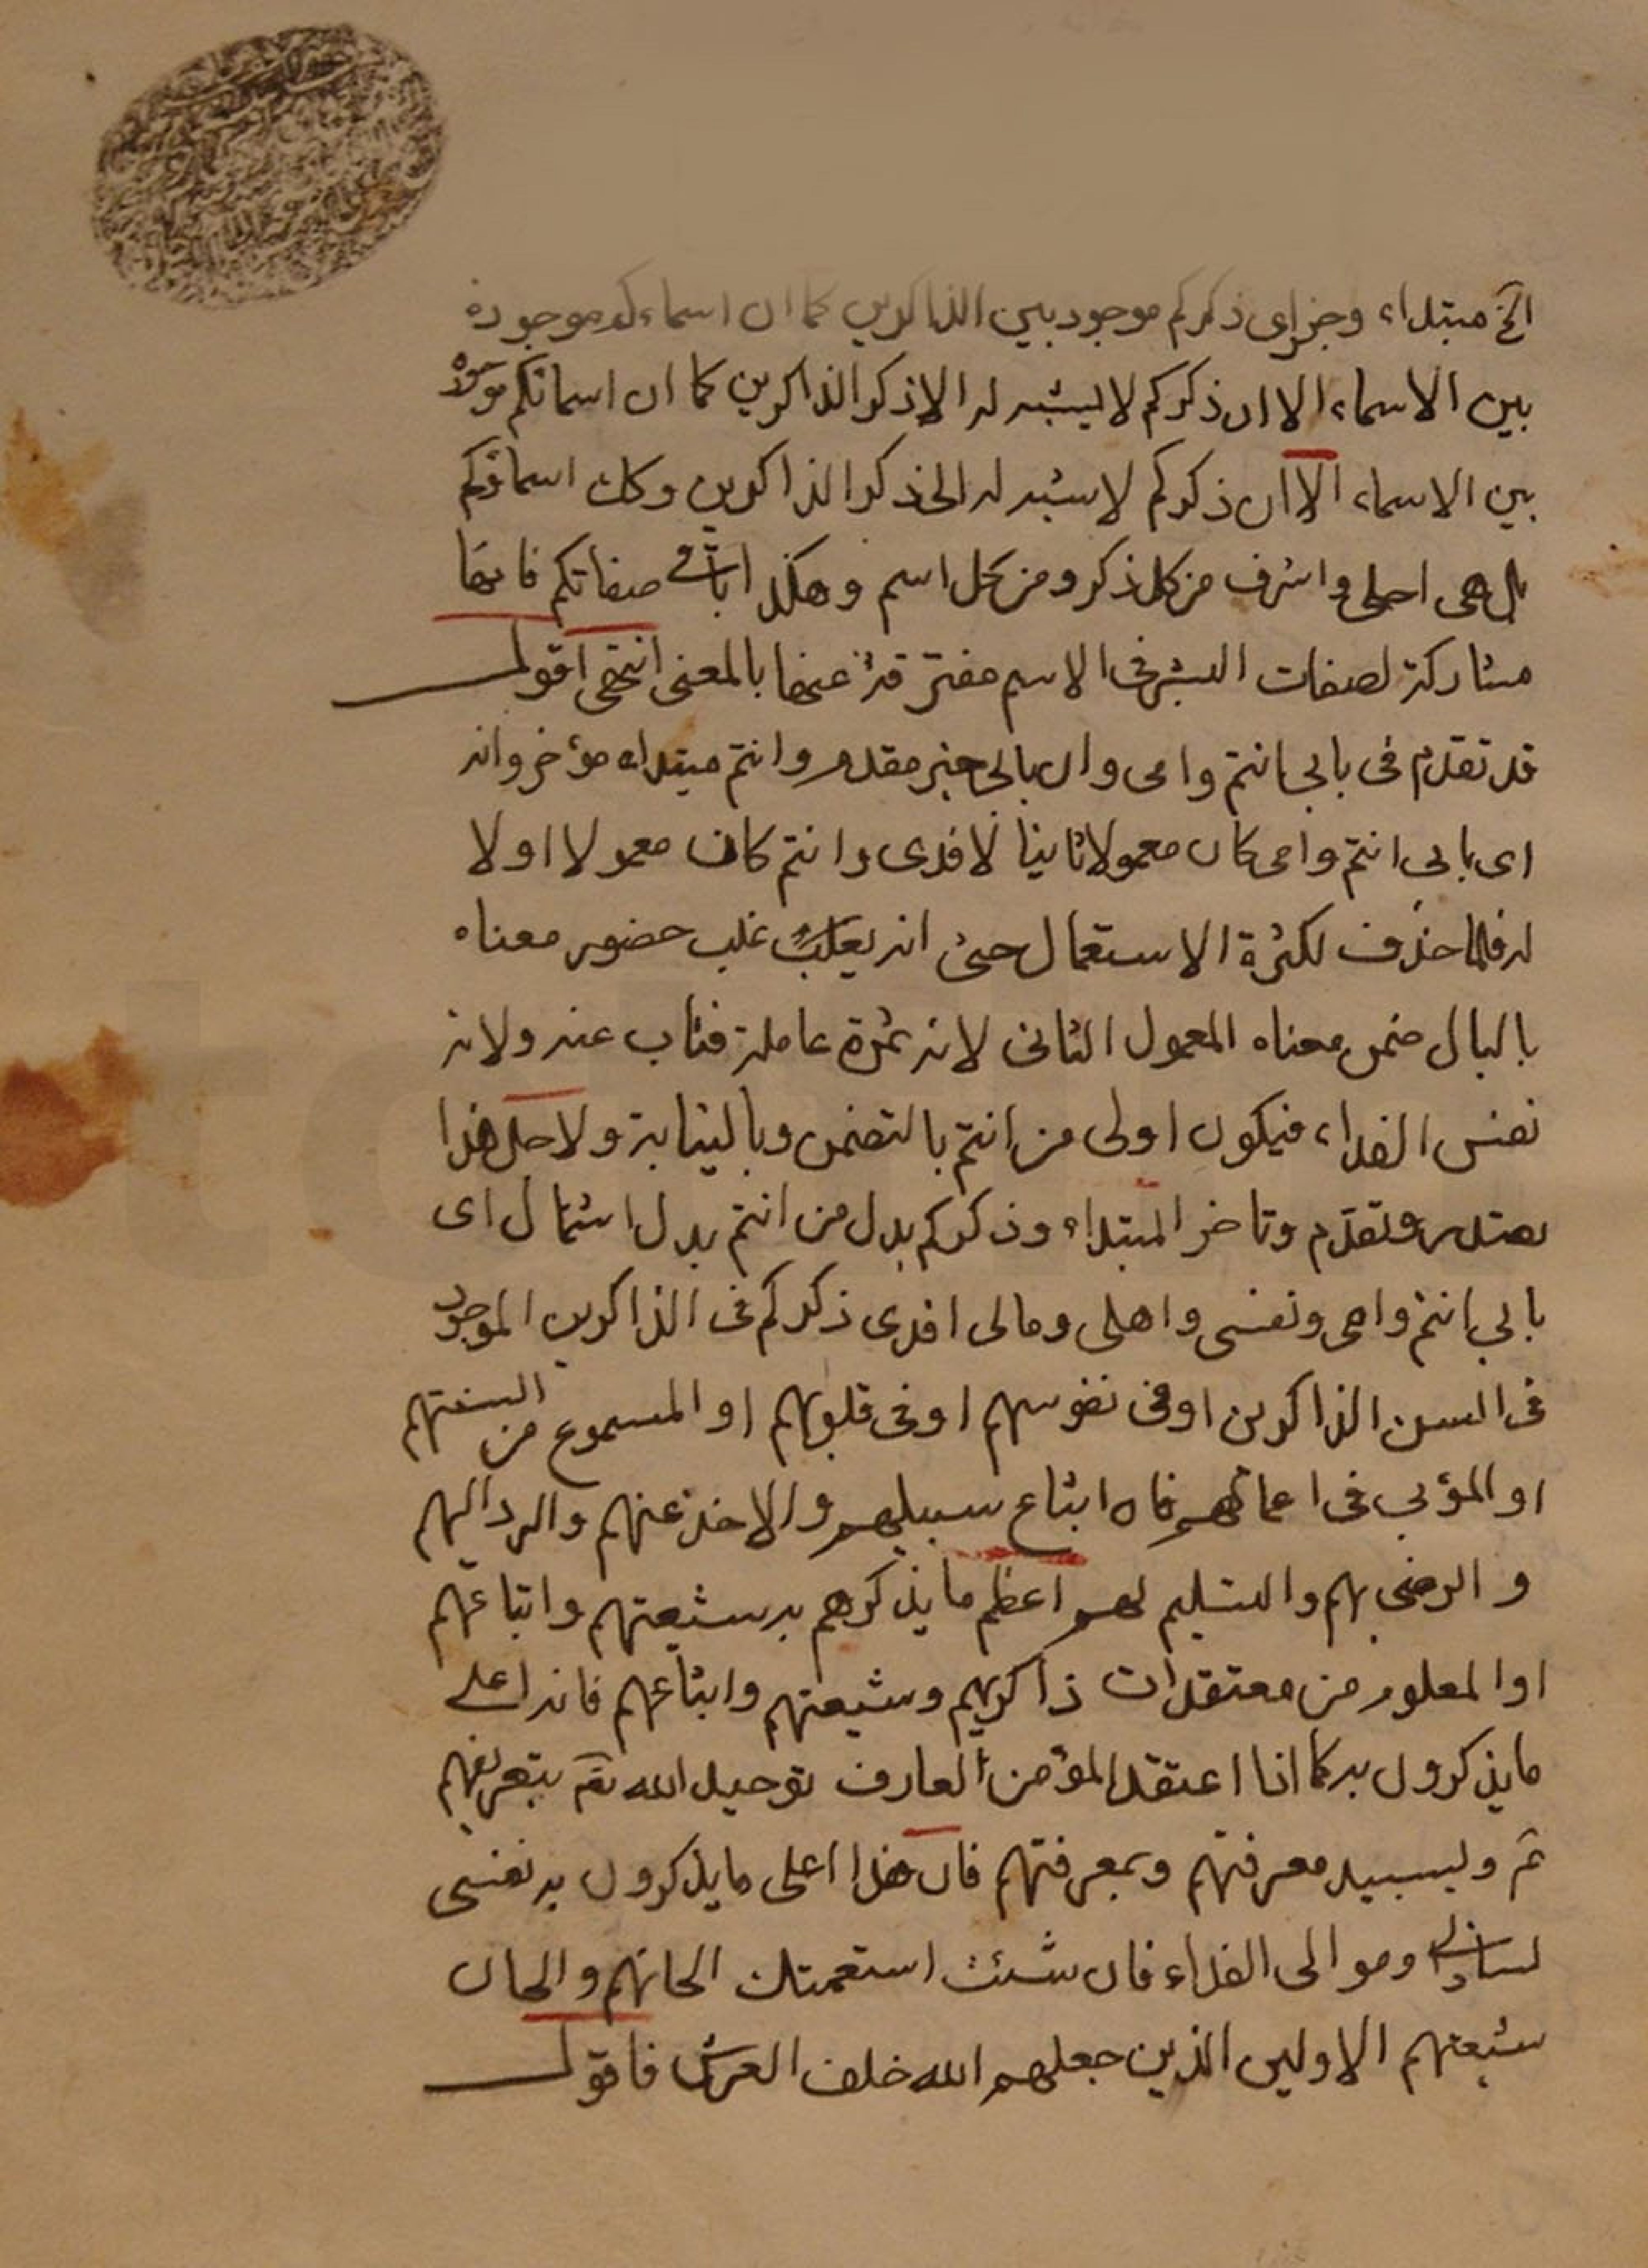 الخ مبتداء وخبر اى ذكركم موجود بين الذاكرين كما ان اسماءكم موجودة
بين الاسماء الا ان ذكركم لا يشبه له الا ذكر الذاكرين كما ان اسمائكم موجود
بين الاسماء الا ان ذكركم لا يشبه له الى ذكر الذاكرين وكك اسماؤكم
بل هى احلى واشرف من كل ذكر ومن كل اسم وهكذا باقى صفاتكم فانها
مشاركة لصفات البشر فى الاسم مفترقة عنها بالمعنى انتهى اقول
قد تقدم فى بابى انتم وامى وان بابى خبر مقدم وانتم مبتداء مؤخر وانه
اى بابى انتم وامى كان معمولا ثانيا لافدى وانتم كان معمولا اولا
له فلما حذف لكثرة الاستعمال حتى انه غلب حضور معناه
بالبال ضمن معناه المعمول الثانى لانه ثمرة عامله فناب عنه ولانه
نفس الفداء فيكون اولى من انتم بالتضمن وبالنيابة ولاجل هذا
وتقدم وتاخر المبتداء وذكركم بدل من انتم بدل اشتمال اى
بابى انتم وامى ونفسى واهلى ومالى افدى ذكركم فى الذاكرين الموجود
فى السن الذاكرين او فى نفوسهم او فى قلوبهم او المسموع من السنتهم
او المؤبى فى اعمالهم فان اتباع سبيلهم والاخذ عنهم والرد اليهم
والرضى بهم والتسليم لهم اعظم ما يذكرهم به شيعتهم واتباعهم
او المعلوم من معتقدات ذاكريهم وشيعتهم واتباعهم فانه اعلى
ما يذكرون به كما اذا اعتقد المؤمن العارف توحيد الله تعم بتعريفهم
ثم وبسبيل معرفتهم وبمعرفتهم فان هذا اعلى ما يذكرون به نفسى
لساداتى وموالى الفداء فان شئت اسمعتك الحانهم والحان
شيعتهم الاولين الذين جعلهم الله خلف العرش فاقول